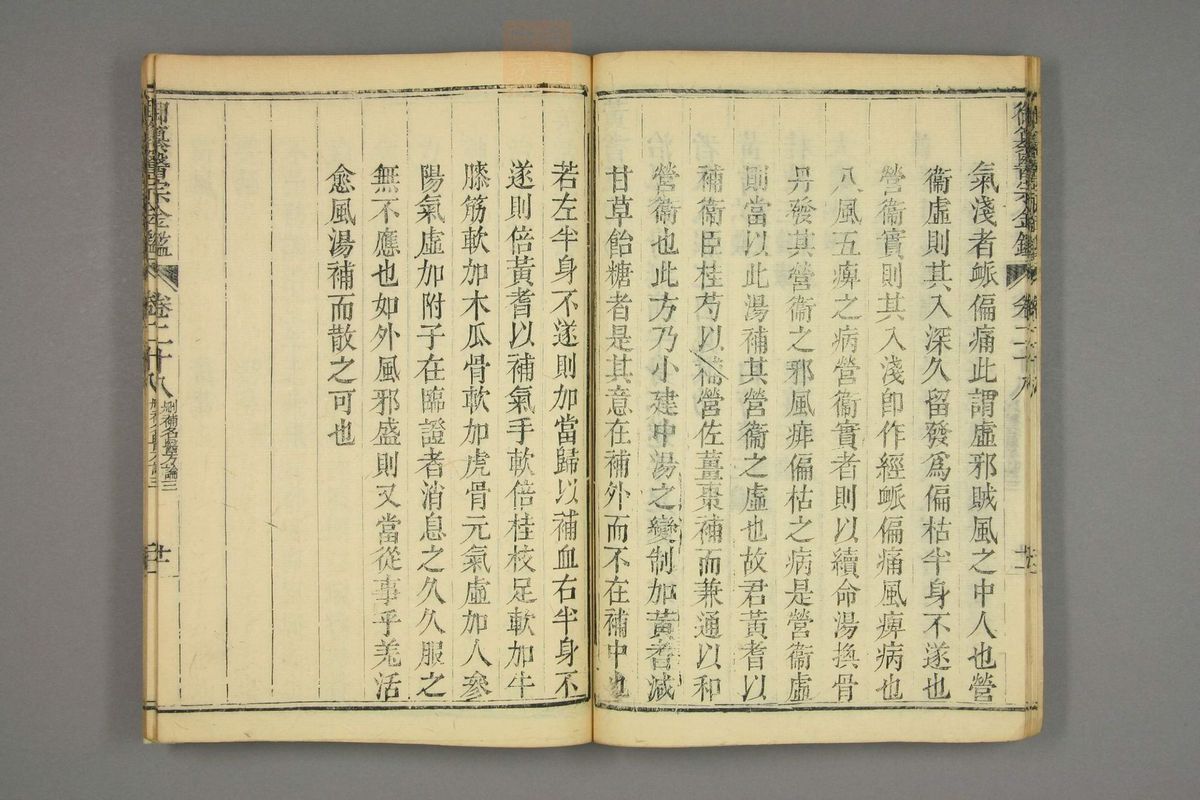 御纂醫宗金鑑
卷二十八
氣淺者衇偏痛此謂虛邪賊風之中人也營
衞虛則其入深久留發爲偏枯半身不遂也
營衞實則其入淺卽作經衇偏痛風痺病也
八風五痺之病營衞實者則以續命湯換骨
丹發其營衞之邪風痱偏枯之病是營衞虛
則當以此湯補其營衞之虛也故君黃耆以
補衞臣桂芍以補營佐薑棗補而兼通以和
營衞也此方乃小建中湯之變制加黃耆減
甘草飴糖者是其意在補外而不在補中也
若左半身不遂則加當歸以補血右半身不
遂則倍黃耆以補氣手軟倍桂枝足軟加牛
膝筋軟加木瓜骨軟加虎骨元氣虛加人參
陽氣虛加附子在臨證者消息之久久服之
無不應也如外風邪盛則又當從事乎羗活
愈風湯補而散之可也
御纂醫宗金鑑
卷二十八
刪補名醫方論三